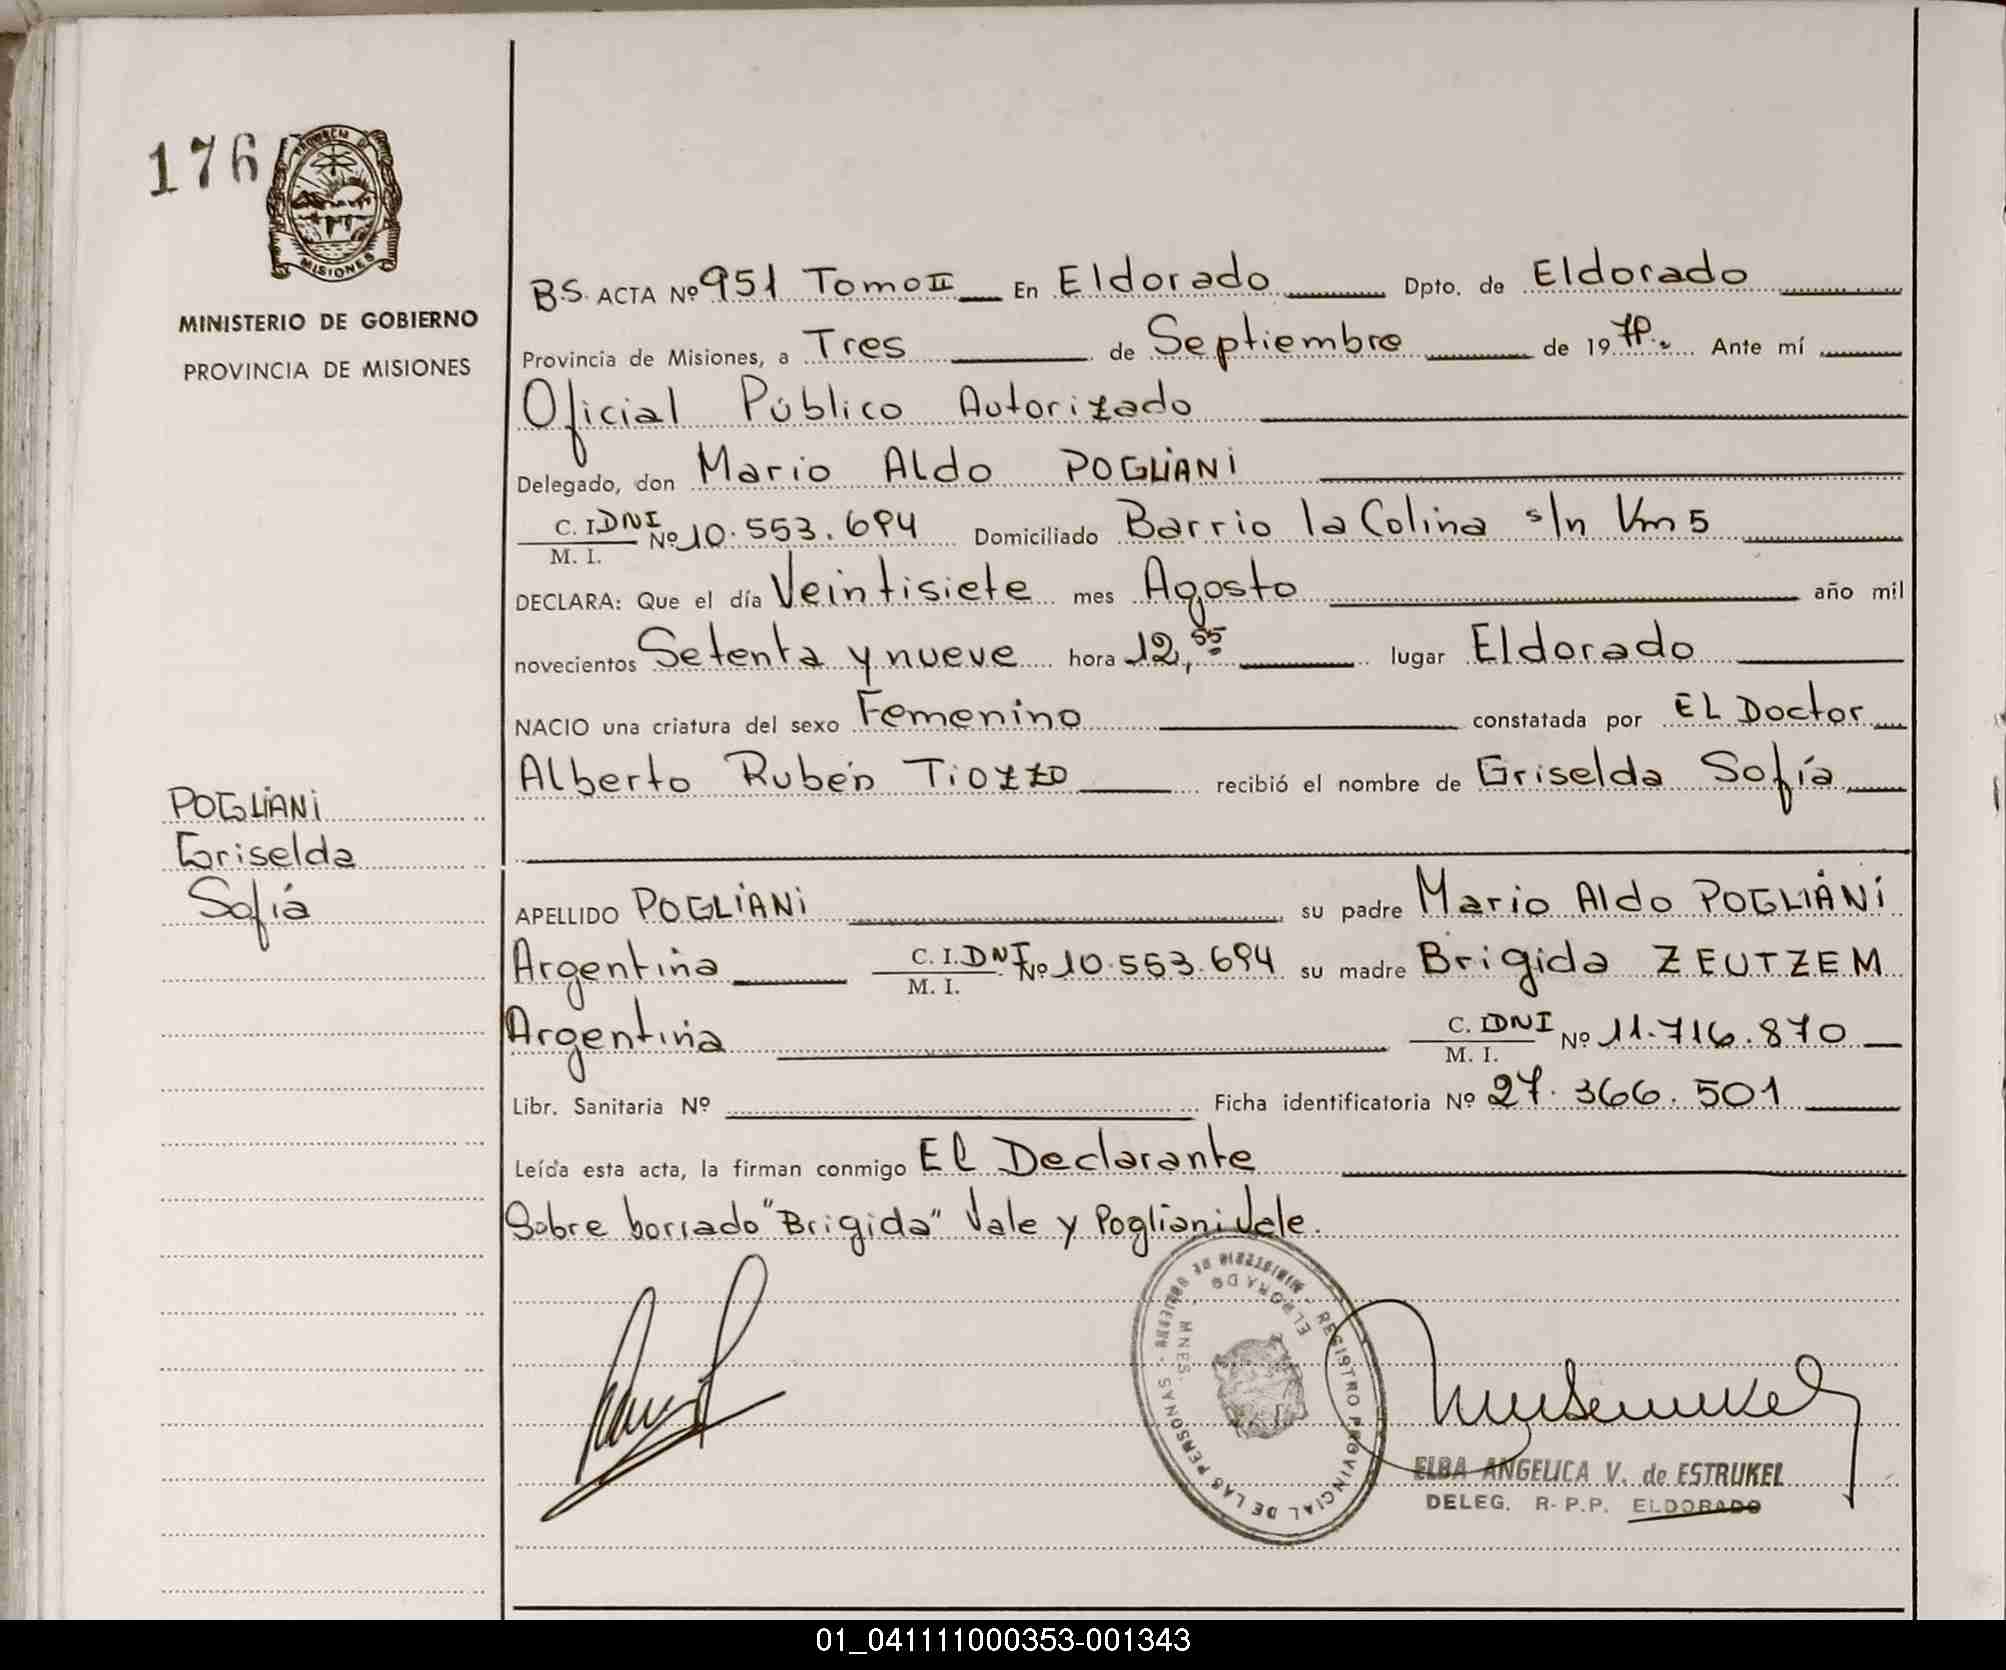 176
PROVINCIA DE
MISIONES
MINISTERIO DE GOBIERNO
PROVINCIA DE MISIONES
B.S. ACTA Nº 951 Tomo II En Eldorado Dpto. de Eldorado
Provincia de Misiones, a Tres de Septiembre de 1979. Ante mí
Oficial Público Autorizado
Delegado, don Mario Aldo POGLIANI
C. I. DNI Nº 10.553.694 Domiciliado Barrio la Colina s/n Km 5
M. I.
DECLARA: Que el día Veintisiete mes Agosto año mil
novecientos Setenta y nueve hora 12,55 lugar Eldorado
NACIO una criatura del sexo Femenino constatada por EL Doctor
Alberto Rubén Tiozzo recibió el nombre de Griselda Sofía
POGLIANI
Griselda
Sofía
APELLIDO POGLIANI su padre Mario Aldo POGLIANI
Argentina C. I. DNI Nº 10.553.694 su madre Brigida ZEUTZEM
M. I.
Argentina C. I. DNI Nº 11.716.870
M. I.
Libr. Sanitaria Nº Ficha identificatoria Nº 27.366.501
Leída esta acta, la firman conmigo El Declarante
Sobre borrado "Brigida" Vale y Pogliani Vale.
REGISTRO PROVINCIAL DE LAS PERSONAS - MINISTERIO DE GOBIERNO -
ELDORADO
MNES.
ELBA ANGELICA V. de ESTRUKEL
DELEG. R-P.P. ELDORADO
01_041111000353-001343